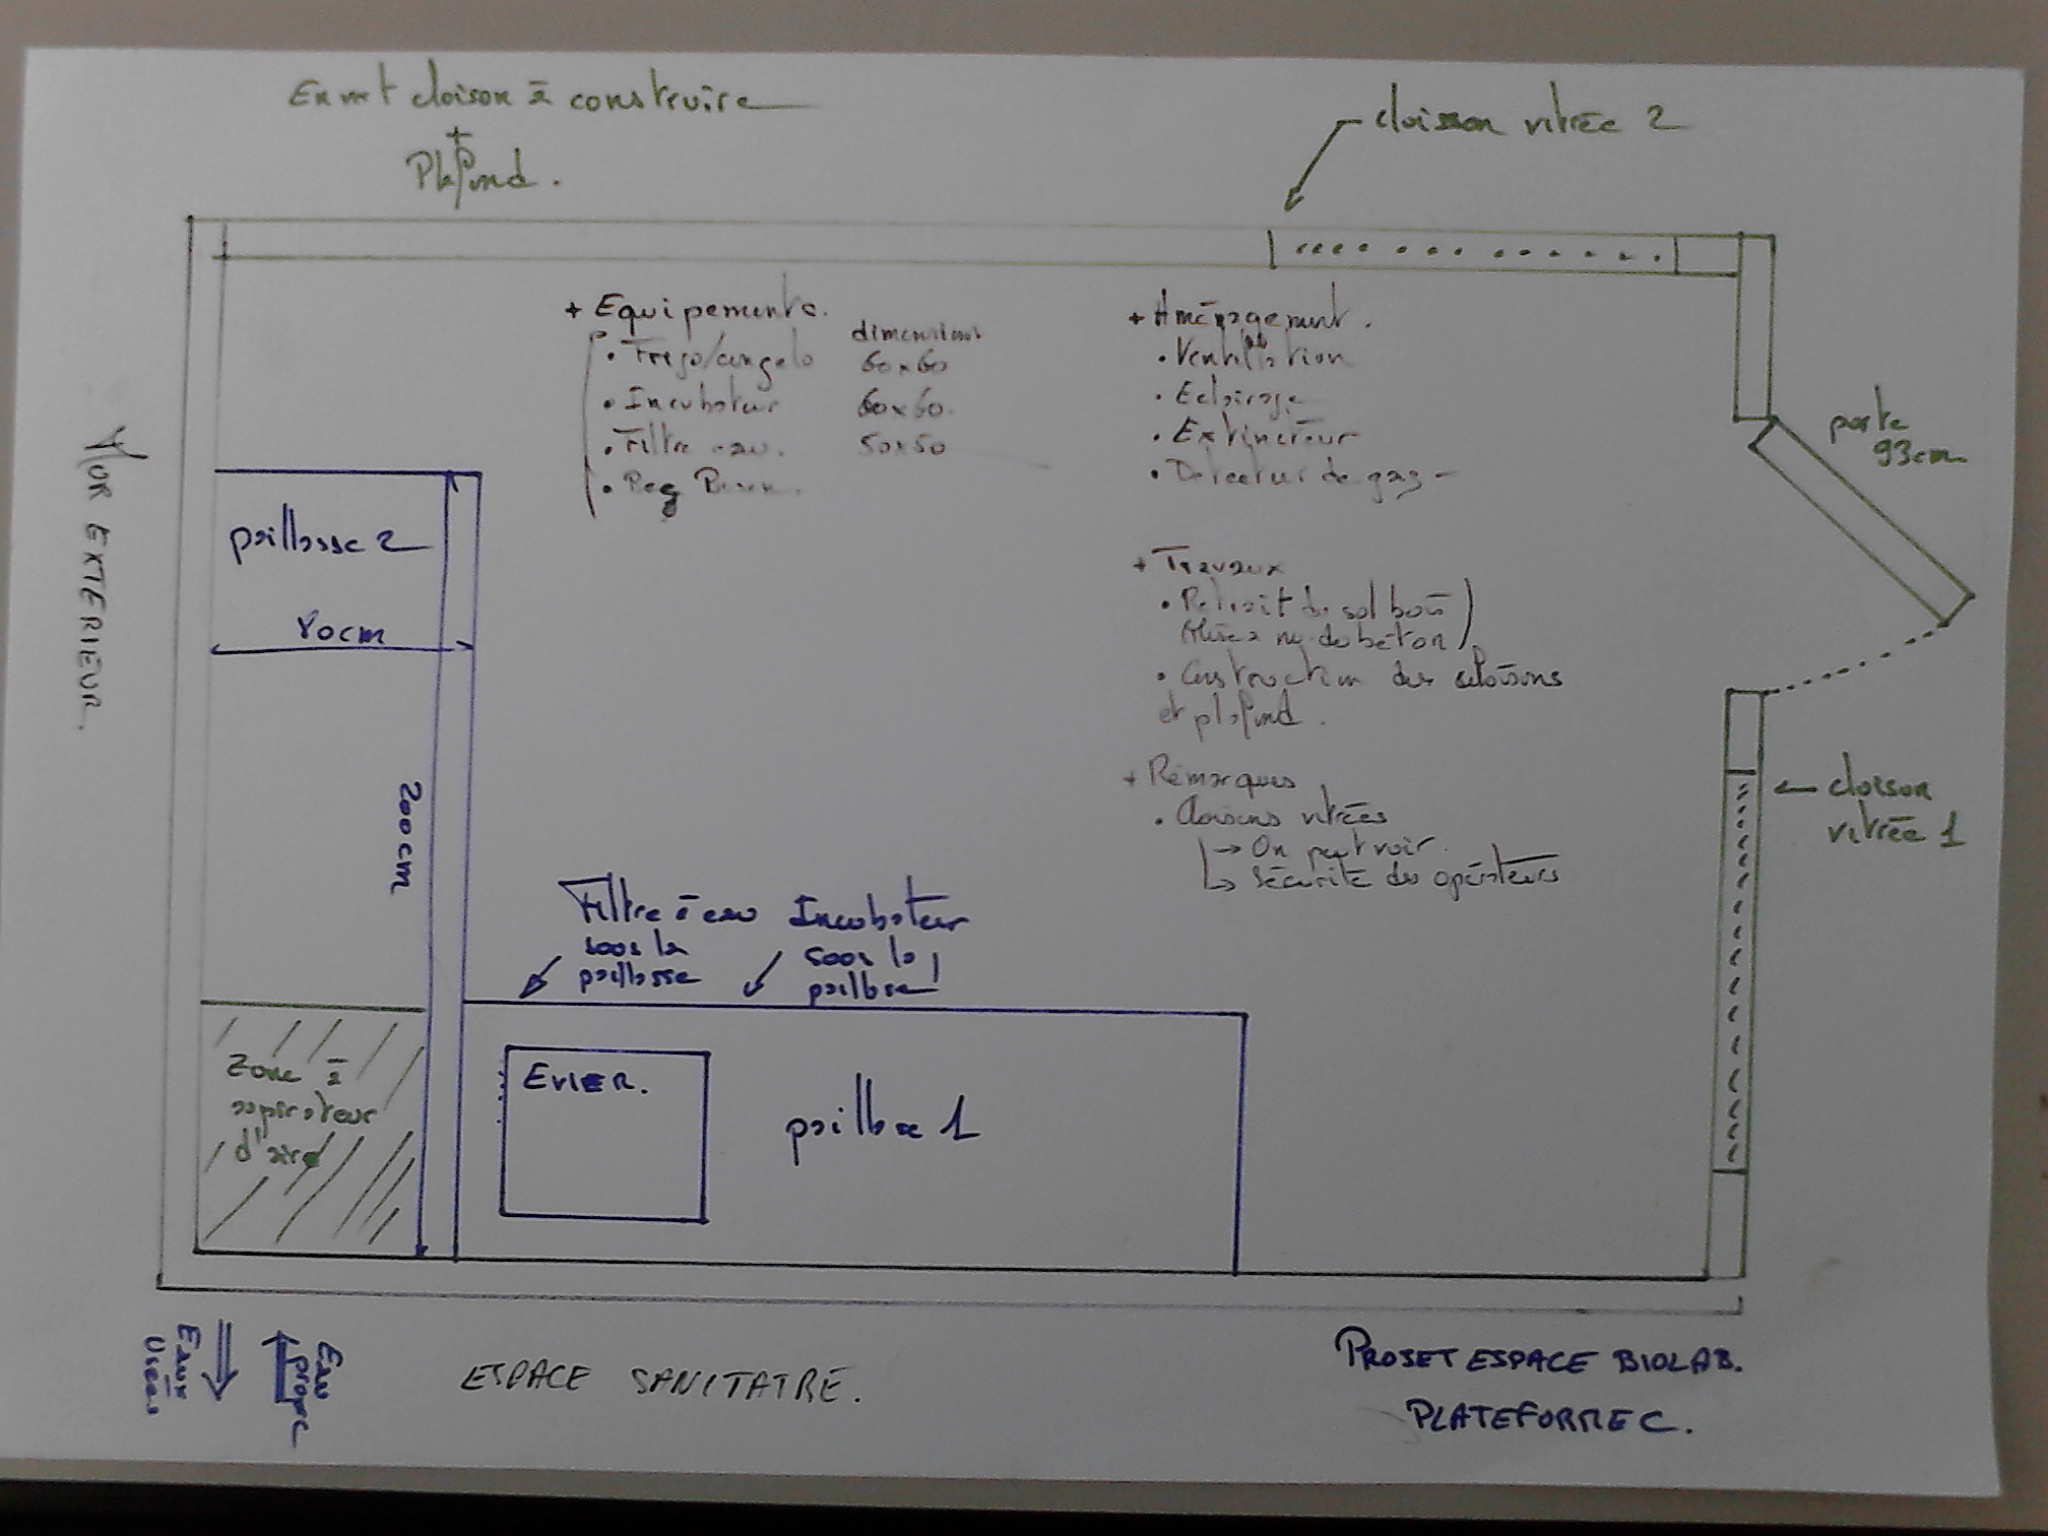 cloison à construire
+
Plafond.
cloison vitrée 2
+ Equipements.
dimensions
• Frigo/congelo 60x60
• Incubateur 60x60.
• Filtre eau. 50x50
• Bec Bunsen.
+ Aménagement.
• Ventilation
• Eclairage
• Extincteur
• Detecteur de gaz
porte
93cm
MUR EXTERIEUR.
paillasse 2
80cm
200cm
+ Travaux
• Retrait du sol bois
(Mise à nu du béton)
• Construction des cloisons
et plafond.
+ Remarques
• Cloisons vitrées
→ On peut voir
↳ Sécurité des opérateurs
cloison
vitrée 1
Filtre à eau
sous la
paillasse
Incubateur
sous la
paillasse
Zone à
aspirateur
d'air
EVIER.
paillasse 1
Eaux
Usées
Eau
propre
ESPACE SANITAIRE.
PROJET ESPACE BIOLAB.
PLATEFORME C.